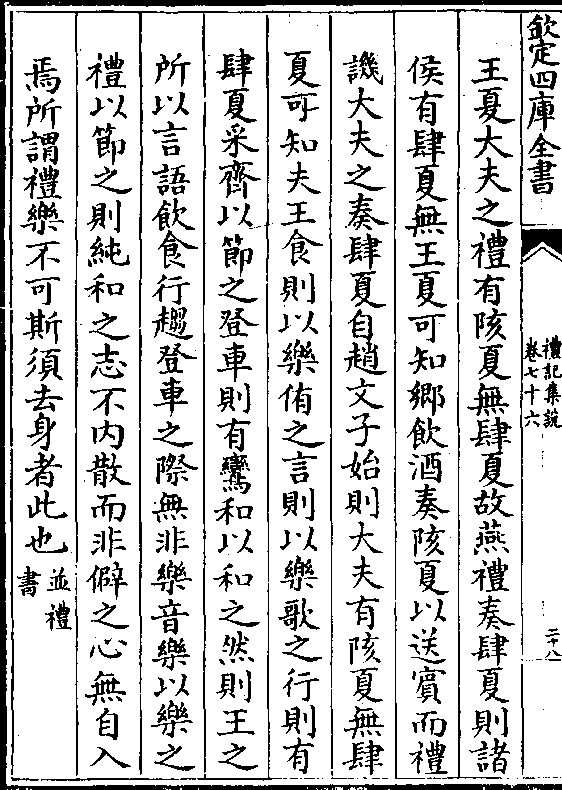 欽定四庫全書
禮記集說
卷七十六
二十八
王夏大夫之禮有陔夏無肆夏故燕禮奏肆夏則諸
侯有肆夏無王夏可知鄉飲酒奏陔夏以送賓而禮
譏大夫之奏肆夏自趙文子始則大夫有陔夏無肆
夏可知夫王食則以樂侑之言則以樂歌之行則有
肆夏采齊以節之登車則有鸞和以和之然則王之
所以言語飲食行趨登車之際無非樂音樂以樂之
禮以節之則純和之志不内散而非僻之心無自入
焉所謂禮樂不可斯須去身者此也並禮
書